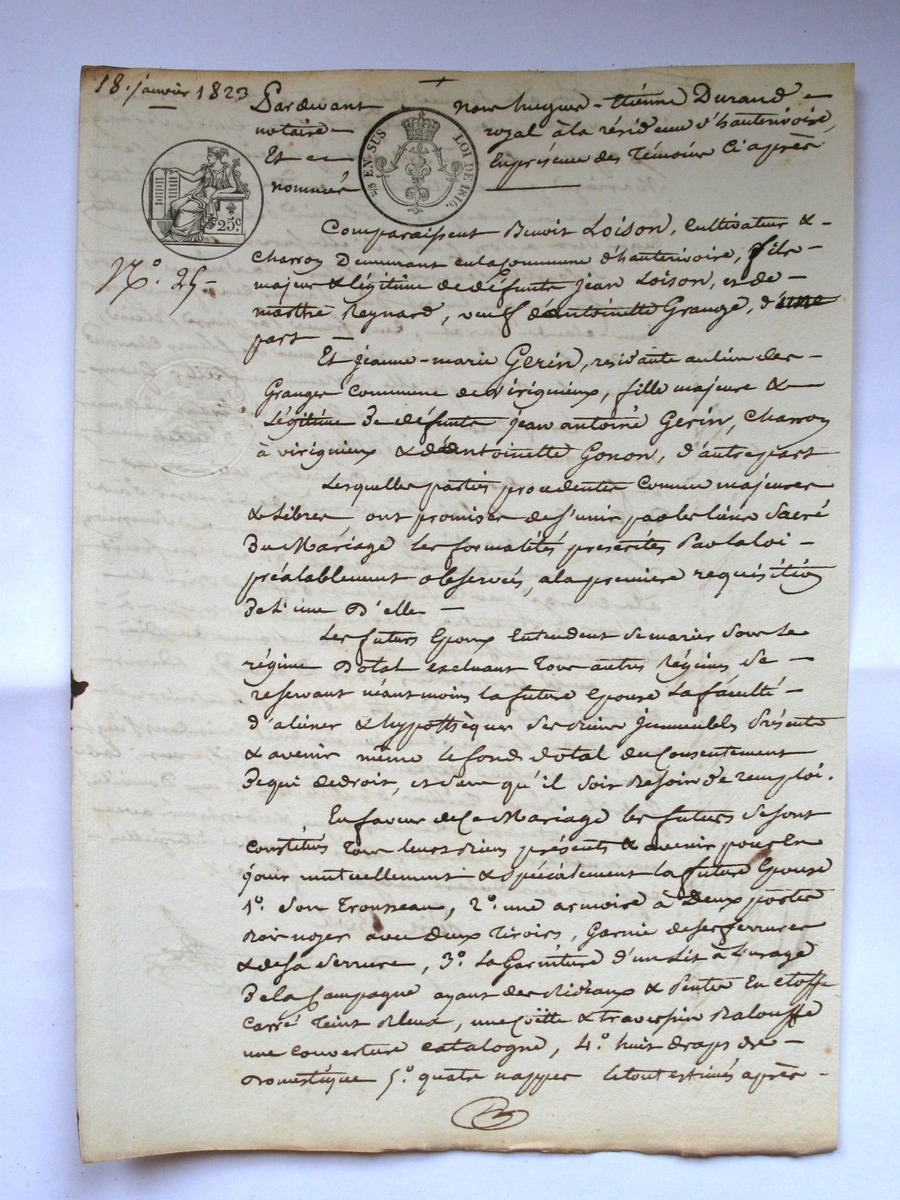 18. janvier 1823
Pardevant nous hugues-Etienne Durand
notaire royal à la résidence d'hauterivoire,
Et en présence des Témoins Ci après
nommés
EN SUS LOI DE 1816.
25c
N.o 25
Comparaissent Benoit Loison, Cultivateur &
Charron Demeurant en la Commune d'hauterivoire, fils
majeur & légitime de défunts jean Loison, et de
marthe Reynard, veuf d'antoinette Grange, d'une
part
Et jeanne-marie Gerin, residante au lieu des
Granges Commune de Virigneux, fille majeure &
Légitime De défunts jean antoine Gerin, Charron
à virigneux & d'antoinette Gonon, d'autre part
Lesquelles parties procedentes Comme majeures
& Libres ont promises de s'unir par les liens Sacré
Du Mariage les formalités prescrites Par la loi
préalablement observés, a la premiere requisition
De L'une D'elle
Les futurs Epoux Entendent Se marier Sous Le
régime Dotal excluant Tous autres Régimes Se
reservant néantmoins la future Epouse La faculté
d'aliéner & hypothéquer Ses biens Immeubles Présents
& avenir même le fond dotal du Consentement
De qui de droit, et Sans qu'il Soit Besoin de remploi.
En faveur de Ce Mariage les futurs Se sont
Constitués Tous leurs biens présents & avenir pour En
jouir mutuellement & spécialement la future Epouse
1.o Son Trousseau, 2.o une armoire à Deux portes
Bois noyer avec deux Tiroirs, Garnie de ses ferrures
& de sa Serrure, 3.o La Garniture d'un Lit à L'usage
De la Campagne ayant des Rideaux & Pentes En etoffe
Carré Teint Bleux, une Coëtte & traversin Balouffe
une couverture catalogne, 4.o huit draps de
Domestique 5.o quatre nappes le tout estimés après